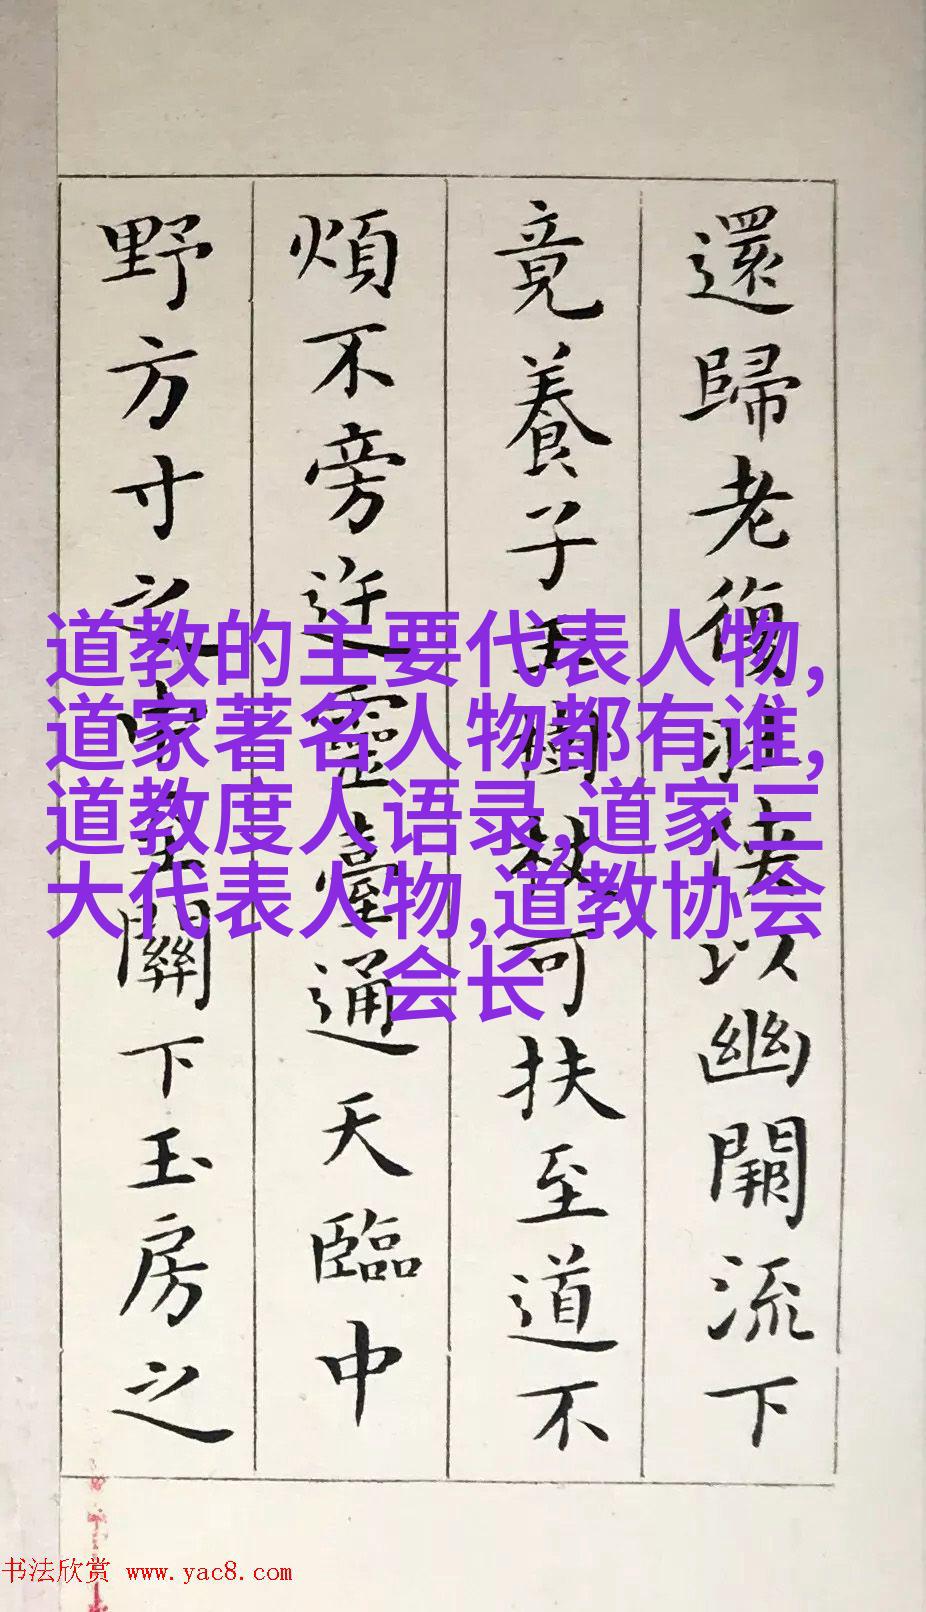 還歸老復以幽闕流下
竟養子玉樹杖可扶至道不
煩不旁迕靈臺通天臨中
野方寸之中至關下玉房之
道教的主要代表人物,
道家著名人物都有谁,
道教度人语录,道家三
大代表人物,道教协会
会长
书法欣赏 www.yac8.com